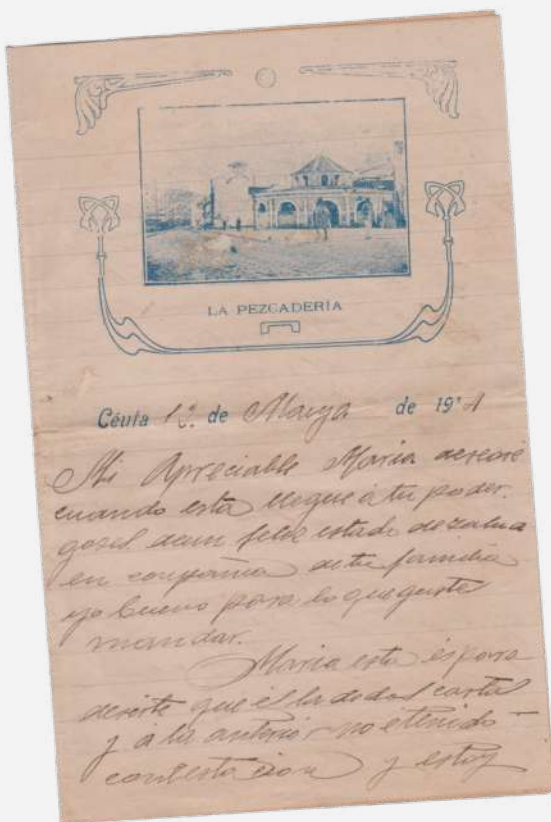 LA PEZCADERÍA
Céuta 12. de Marzo de 19'4
Mi Apreciable Maria deseare
cuando esta llegue á tu poder.
goses deun feliz estado dezalua
en conpañia detu familia
yo bueno para lo que guste
mandar.
Maria esta és para
desirte que él la dedos carta
y á la anterior no etenido
contestacion y estoy